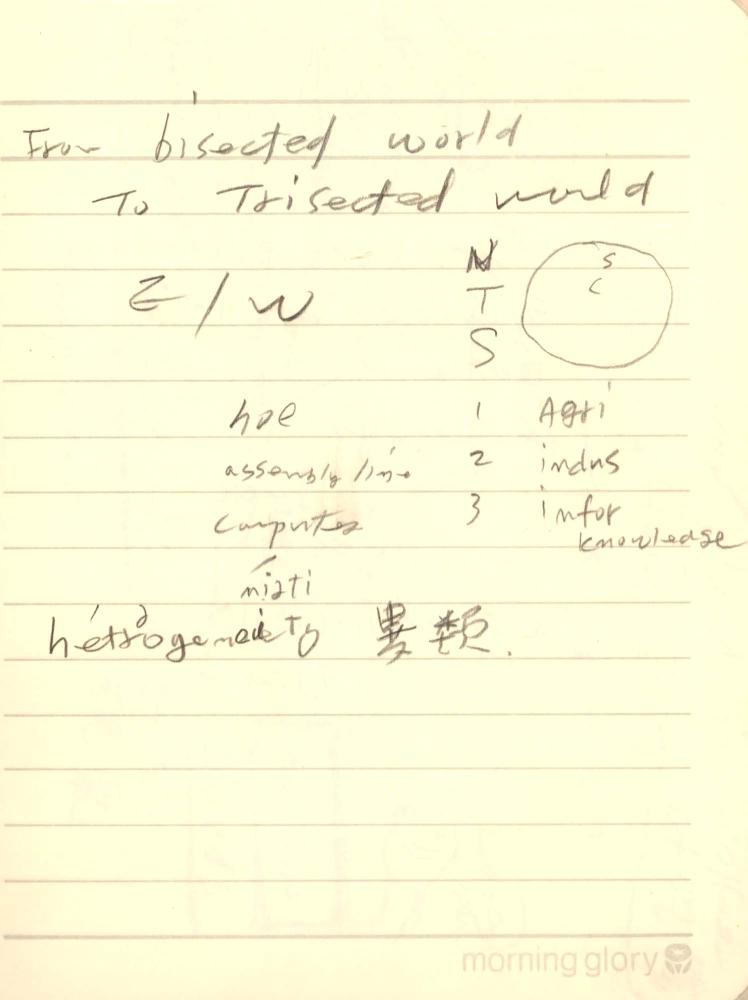 From bisected world
To Trisected world
E / W
N
T
S
S
C
hoe 1 Agri
assembly line 2 indus
computer 3 infor
knowledge
異類.
morning glory